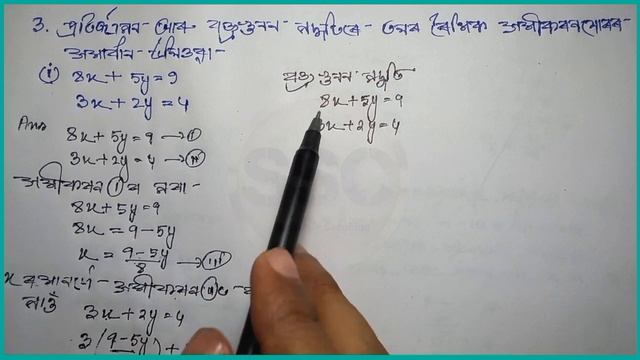 3. প্ৰতিস্থাপন আৰু বজ্ৰগুণন পদ্ধতিৰে তলৰ ৰৈখিক সমীকৰণবোৰৰ
সমাধান উলিওৱা-
(i) 8x + 5y = 9
3x + 2y = 4
Ans
8x + 5y = 9 → (i)
3x + 2y = 4 → (ii)
সমীকৰণ (i) ৰ পৰা-
8x + 5y = 9
8x = 9-5y
x = 9-5y/8 → (iii)
x ৰ মান সমীকৰণ (ii) ত
পাওঁ
3x + 2y = 4
3(9-5y) +
বজ্ৰ গুণন পদ্ধতি
8x + 5y = 9
3x + 2y = 4
SSC